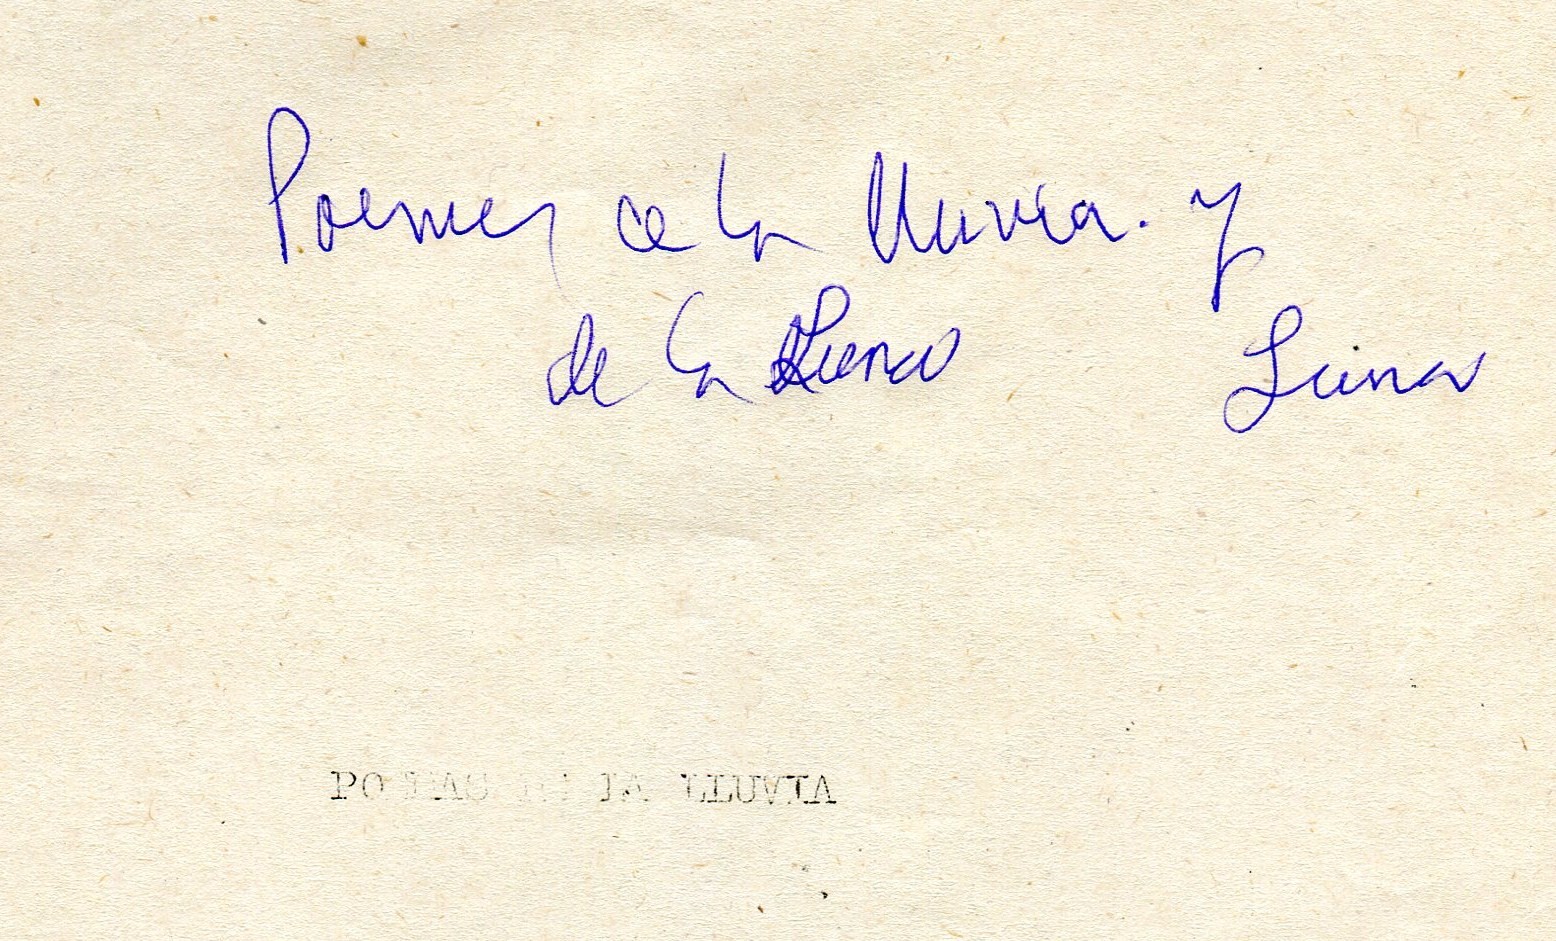 Poemas de la lluvia. y
de la Luna Luna
POEMAS DE LA LLUVIA